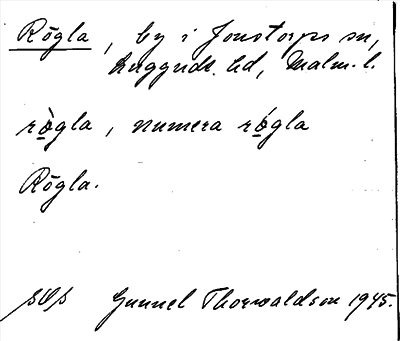 Rögla, by i Jonstorps sn,
Luggude hd, Malm. l.
rògla, numera rógla
Rögla.
SOS Gunnel Thorwaldson 1945.